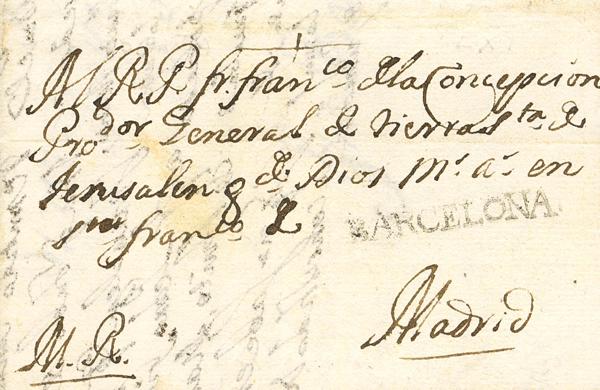 Al R P. fr. fran.co de la Concepcion
Pro.dor General de tierra s.ta de
Jerusalen g. de Dios m.s a.s en
s.n fran.co de
BARCELONA
Madrid
M. R.